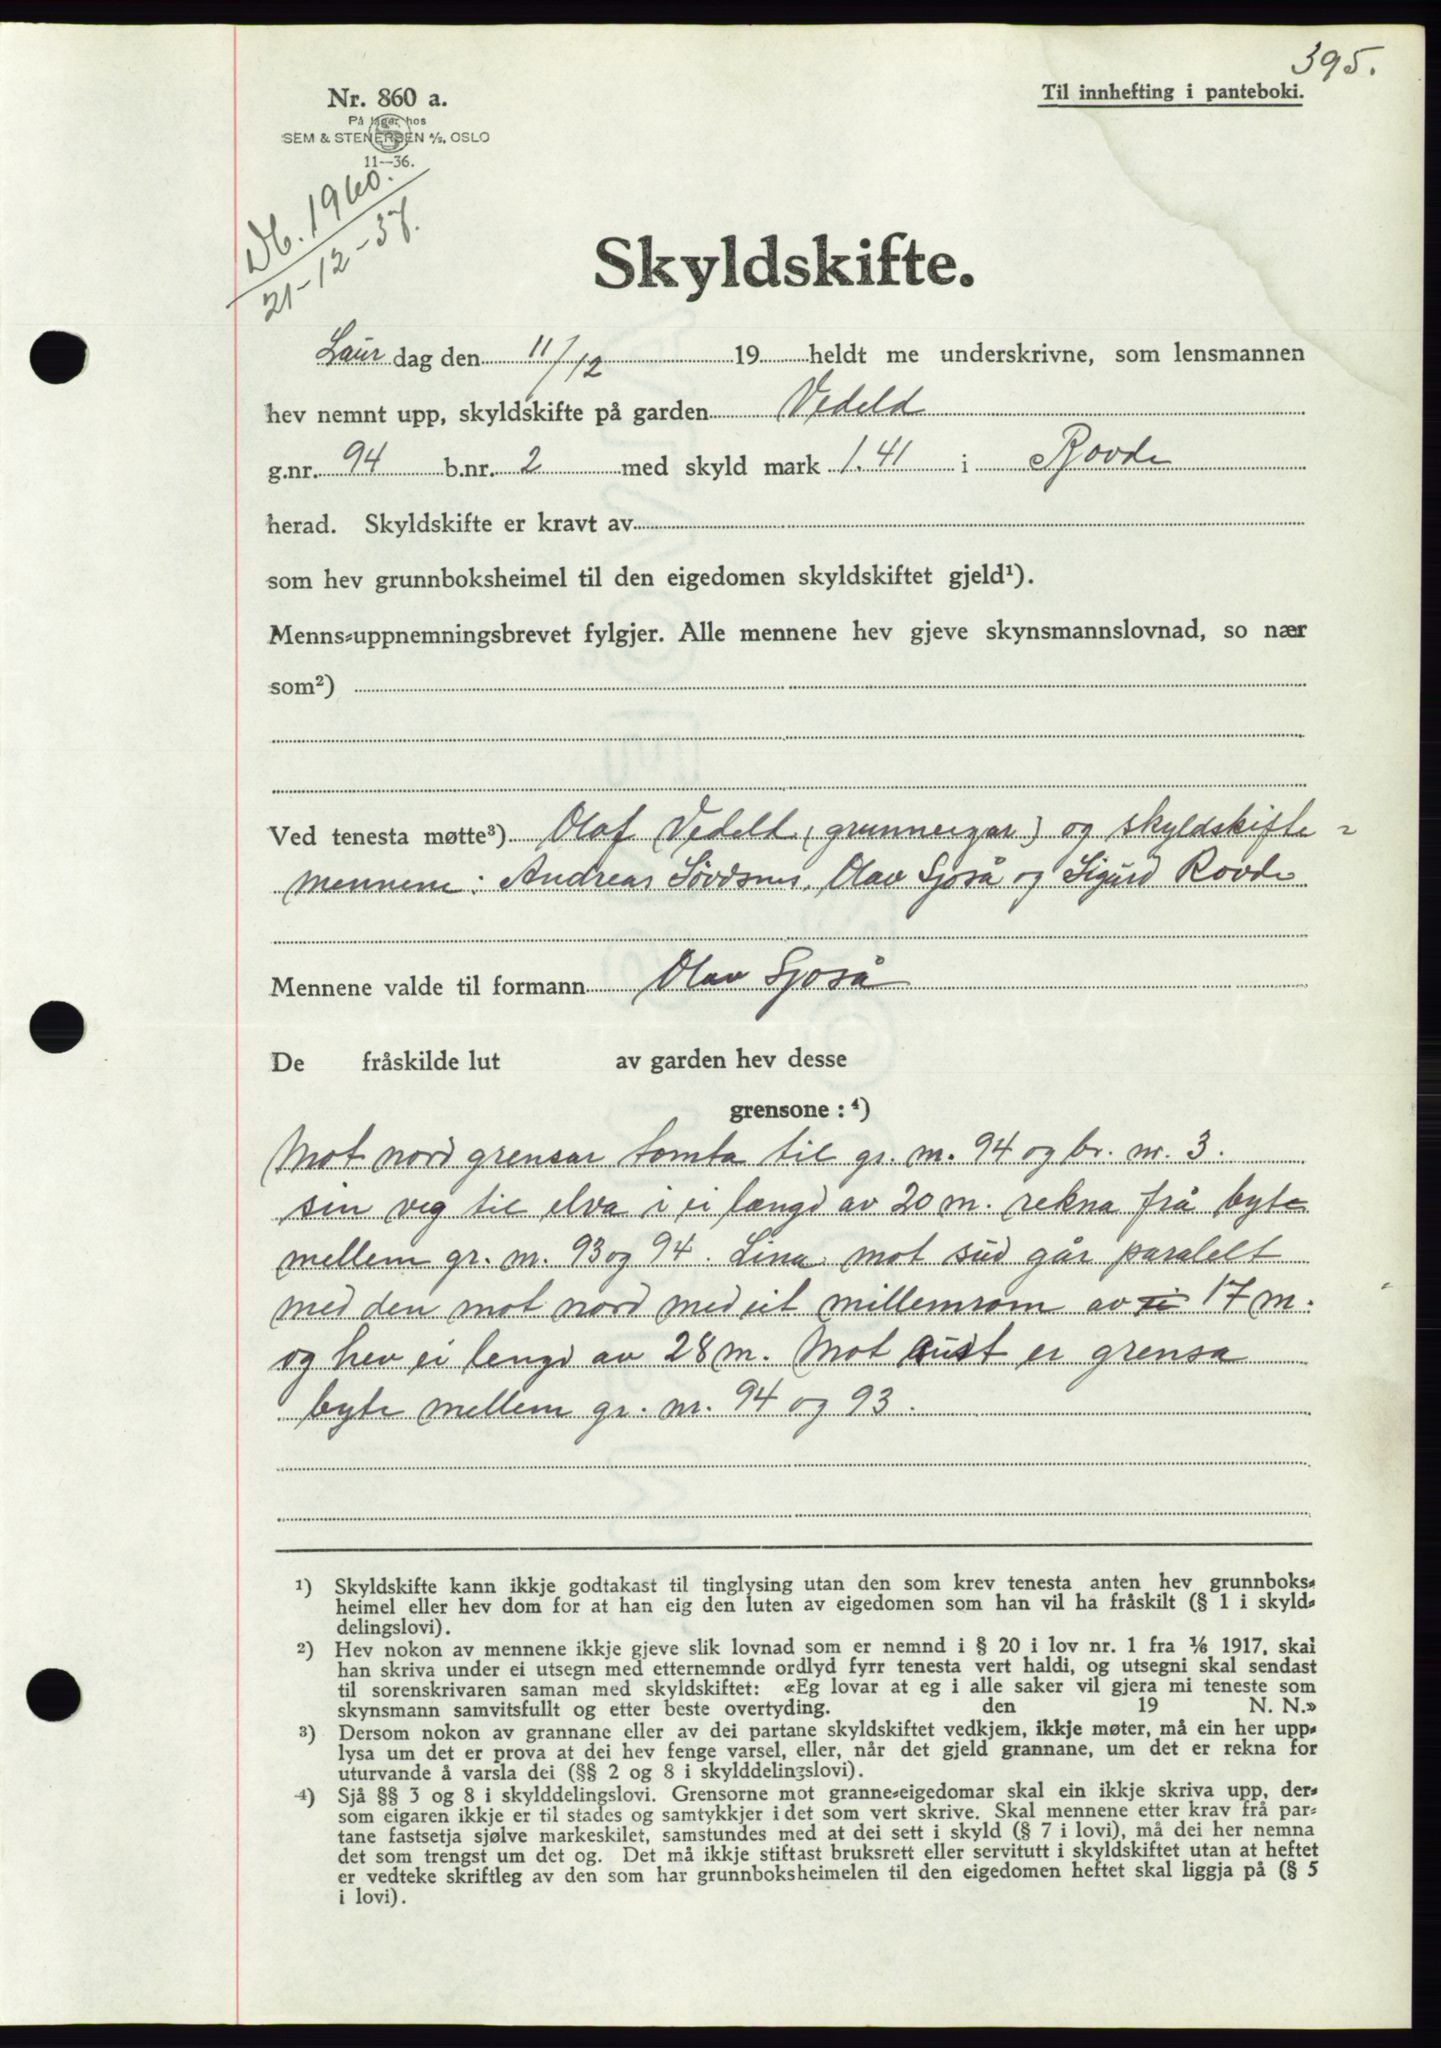 395.
Nr. 860 a.
På lager hos
SEM & STENERSEN A/S, OSLO
11—36.
Til innhefting i panteboki.
Db. 1960.
21-12-37.
Skyldskifte.
Laur dag den 11/12 19 heldt me underskrivne, som lensmannen
hev nemnt upp, skyldskifte på garden Vedeld
g.nr. 94 b.nr. 2 med skyld mark 1.41 i Rovde
herad. Skyldskifte er kravt av
som hev grunnboksheimel til den eigedomen skyldskiftet gjeld¹).
Menns-uppnemningsbrevet fylgjer. Alle mennene hev gjeve skynsmannslovnad, so nær
som²)
Ved tenesta møtte³) Olaf Vedelt (grunneigar) og skyldskifte-
mennene: Andreas Søvdsnes, Olav Sjoså og Sigurd Rovde
Mennene valde til formann Olav Sjoså
De fråskilde lut av garden hev desse
grensone : ⁴)
Mot nord grensar tomta til gr. nr. 94 og br. nr. 3.
sin veg til elva i ei længd av 20 m. rekna frå byte
mellem gr. nr. 93 og 94. Lina mot sud går paralelt
med den mot nord med eit millemrom av 17 m.
og hev ei lengd av 28 m. Mot aust er grensa
byte mellem gr. nr. 94 og 93.
1) Skyldskifte kann ikkje godtakast til tinglysing utan den som krev tenesta anten hev grunnboks-
heimel eller hev dom for at han eig den luten av eigedomen som han vil ha fråskilt (§ 1 i skyld-
delingslovi).
2) Hev nokon av mennene ikkje gjeve slik lovnad som er nemnd i § 20 i lov nr. 1 fra 1/6 1917, skal
han skriva under ei utsegn med etternemnde ordlyd fyrr tenesta vert haldi, og utsegni skal sendast
til sorenskrivaren saman med skyldskiftet: «Eg lovar at eg i alle saker vil gjera mi teneste som
skynsmann samvitsfullt og etter beste overtyding. den 19 N. N.»
3) Dersom nokon av grannane eller av dei partane skyldskiftet vedkjem, ikkje møter, må ein her upp-
lysa um det er prova at dei hev fenge varsel, eller, når det gjeld grannane, um det er rekna for
uturvande å varsla dei (§§ 2 og 8 i skylddelingslovi).
4) Sjå §§ 3 og 8 i skylddelingslovi. Grensorne mot granne-eigedomar skal ein ikkje skriva upp, der-
som eigaren ikkje er til stades og samtykkjer i det som vert skrive. Skal mennene etter krav frå par-
tane fastsetja sjølve markeskilet, samstundes med at dei sett i skyld (§ 7 i lovi), må dei her nemna
det som trengst um det og. Det må ikkje stiftast bruksrett eller servitutt i skyldskiftet utan at heftet
er vedteke skriftleg av den som har grunnboksheimelen til den eigedomen heftet skal liggja på (§ 5
i lovi).